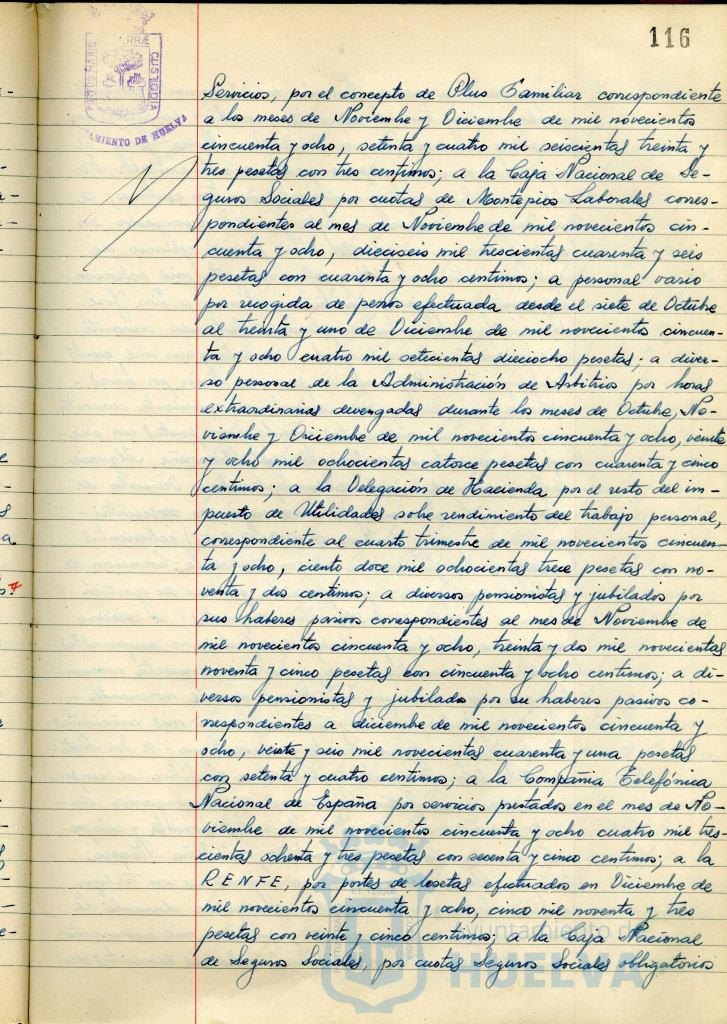 116
PORTUS MARIS
TERRAE
CUSTODIA
AMIENTO DE HUELVA
Servicios, por el concepto de Plus Familiar correspondiente
a los meses de Noviembre y Diciembre de mil novecientos
cincuenta y ocho, setenta y cuatro mil seiscientas treinta y
tres pesetas con tres centimos; a la Caja Nacional de Se-
guros Sociales por cuotas de Montepios Laborales corres-
pondientes al mes de Noviembre de mil novecientos cin-
cuenta y ocho, dieciseis mil trescientas cuarenta y seis
pesetas con cuarenta y ocho centimos; a personal vario
por recogida de perros efectuada desde el siete de Octubre
al treinta y uno de Diciembre de mil novecientos cincuen-
ta y ocho cuatro mil setecientas dieciocho pesetas; a diver-
so personal de la Administración de Arbitrios por horas
extraordinarias devengadas durante los meses de Octubre, No-
viembre y Diciembre de mil novecientos cincuenta y ocho, veinte
y ocho mil ochocientas catorce pesetas con cuarenta y cinco
centimos; a la Delegación de Hacienda por el resto del im-
puesto de Utilidades sobre rendimiento del trabajo personal,
correspondiente al cuarto trimestre de mil novecientos cincuen-
ta y ocho, ciento doce mil ochocientas trece pesetas con no-
venta y dos centimos; a diversos pensionistas y jubilados por
sus haberes pasivos correspondientes al mes de Noviembre de
mil novecientos cincuenta y ocho, treinta y dos mil novecientas
noventa y cinco pesetas con cincuenta y ocho centimos; a di-
versos pensionistas y jubilados por su haberes pasivos co-
rrespondientes a diciembre de mil novecientos cincuenta y
ocho, veinte y seis mil novecientas cuarenta y una pesetas
con setenta y cuatro centimos; a la Compañia Telefónica
Nacional de España por servicios prestados en el mes de No-
viembre de mil novecientos cincuenta y ocho cuatro mil tres-
cientas ochenta y tres pesetas con sesenta y cinco centimos; a la
RENFE, por portes de losetas efectuados en Diciembre de
mil novecientos cincuenta y ocho, cinco mil noventa y tres
pesetas con veinte y cinco centimos; a la Caja Nacional
de Seguros Sociales, por cuotas Seguros Sociales obligatorios
Ayuntamiento de
HUELVA